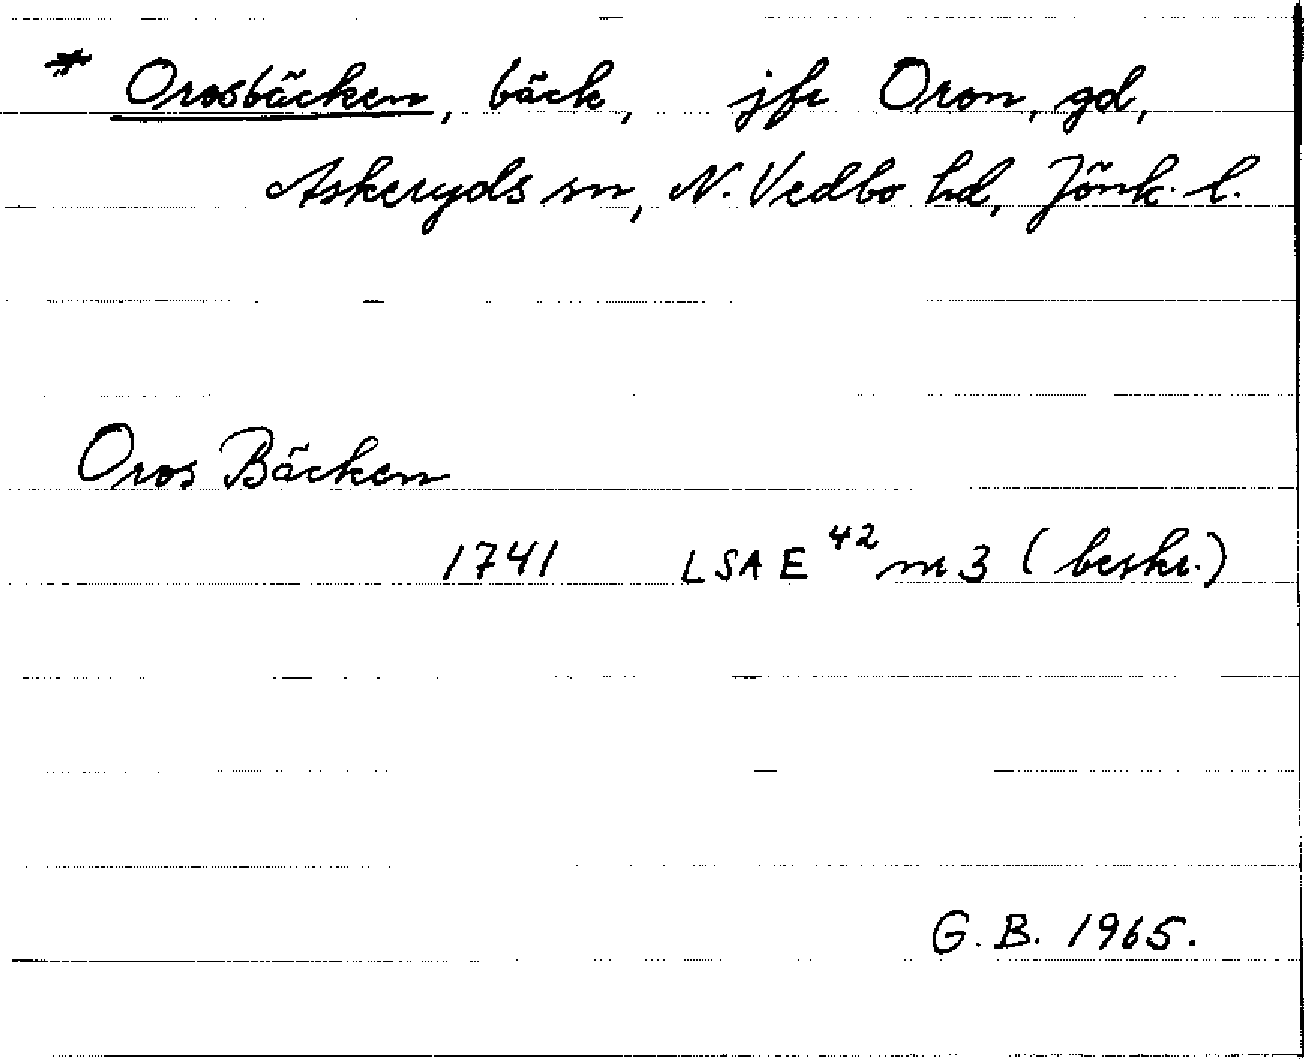 * Orosbäcken, bäck, jfr Oron, gd,
Askeryds sn, N. Vedbo hd, Jönk. l.
Oros Bäcken
1741 LSA E 42 nr 3 (beskr.)
G. B. 1965.